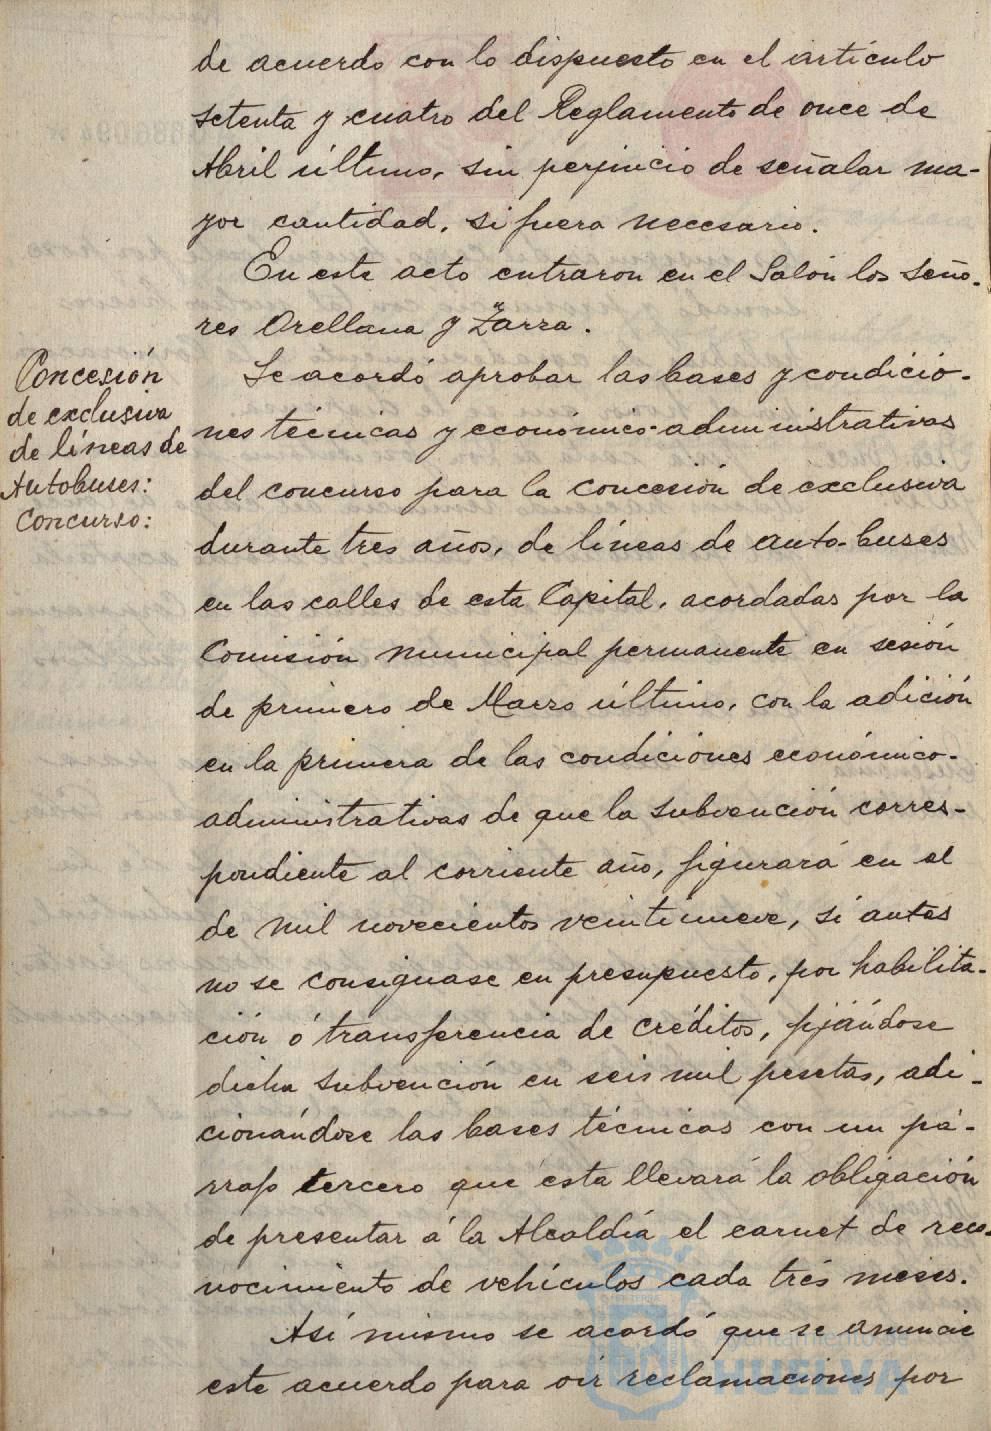 de acuerdo con lo dispuesto en el artículo
setenta y cuatro del Reglamento de once de
Abril último, sin perjuicio de señalar ma-
yor cantidad, si fuera necesario.
En este acto entraron en el Salón los Seño-
res Orellana y Zarza.
Concesión
de exclusiva
de líneas de
Autobuses:
Concurso:
Se acordó aprobar las bases y condicio-
nes técnicas y económico-administrativas
del concurso para la concesión de exclusiva
durante tres años, de líneas de auto-buses
en las calles de esta Capital, acordadas por la
Comisión municipal permanente en sesión
de primero de Marzo último, con la adición
en la primera de las condiciones económico-
administrativas de que la subvención corres-
pondiente al corriente año, figurará en el
de mil novecientos veintinueve, si antes
no se consiguase en presupuesto, por habilita-
ción ó transferencia de créditos, fijándose
dicha subvención en seis mil pesetas, adi-
cionándose las bases técnicas con un pá-
rrafo tercero que esta llevará la obligación
de presentar á la Alcaldía el carnet de reco-
nocimiento de vehículos cada trés meses.
Así mismo se acordó que se anuncie
este acuerdo para oir reclamaciones por
Ayuntamiento de
HUELVA